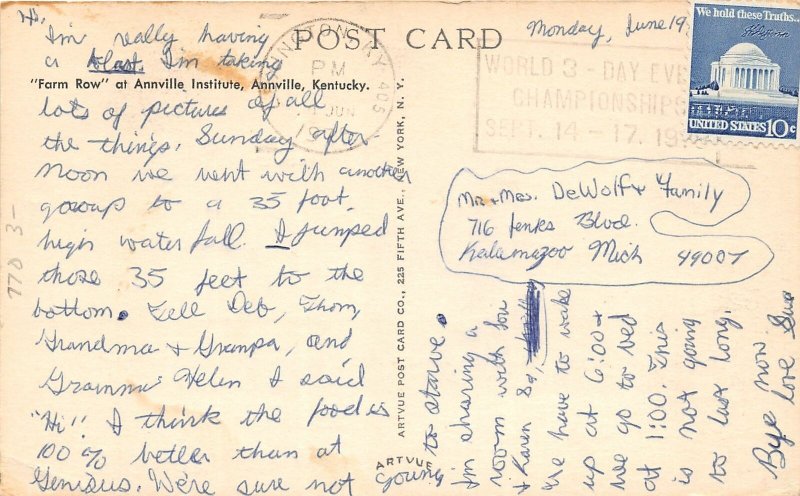 Hi,
I'm really having
a blast. I'm taking
"Farm Row" at Annville Institute, Annville, Kentucky.
lots of pictures of all
the things. Sunday after
noon we went with another
group to a 35 foot
high water fall. I jumped
those 35 feet to the
bottom. Tell Deb, Thom,
Grandma + Grampa, and
Gramma Helen I said
"Hi!" I think the food is
100% better than at
We're sure not
going
to starve.
I'm sharing a
room with Lou
+ Karen So,
we have to wake
up at 6:00 +
we go to bed
at 1:00. This
is not going
to last long.
Bye now
love Sue
POST CARD
ARTVUE POST CARD CO., 225 FIFTH AVE., NEW YORK, N. Y.
ARTVUE
PM
JUN
KY 405
Monday, June 19
WORLD 3 - DAY EVE
CHAMPIONSHIPS
SEPT. 14 - 17, 19
We hold these Truths..
UNITED STATES 10c
Mr + Mrs. DeWolf + Family
716 Jenks Blvd.
Kalamazoo Mich 49007
770 3-